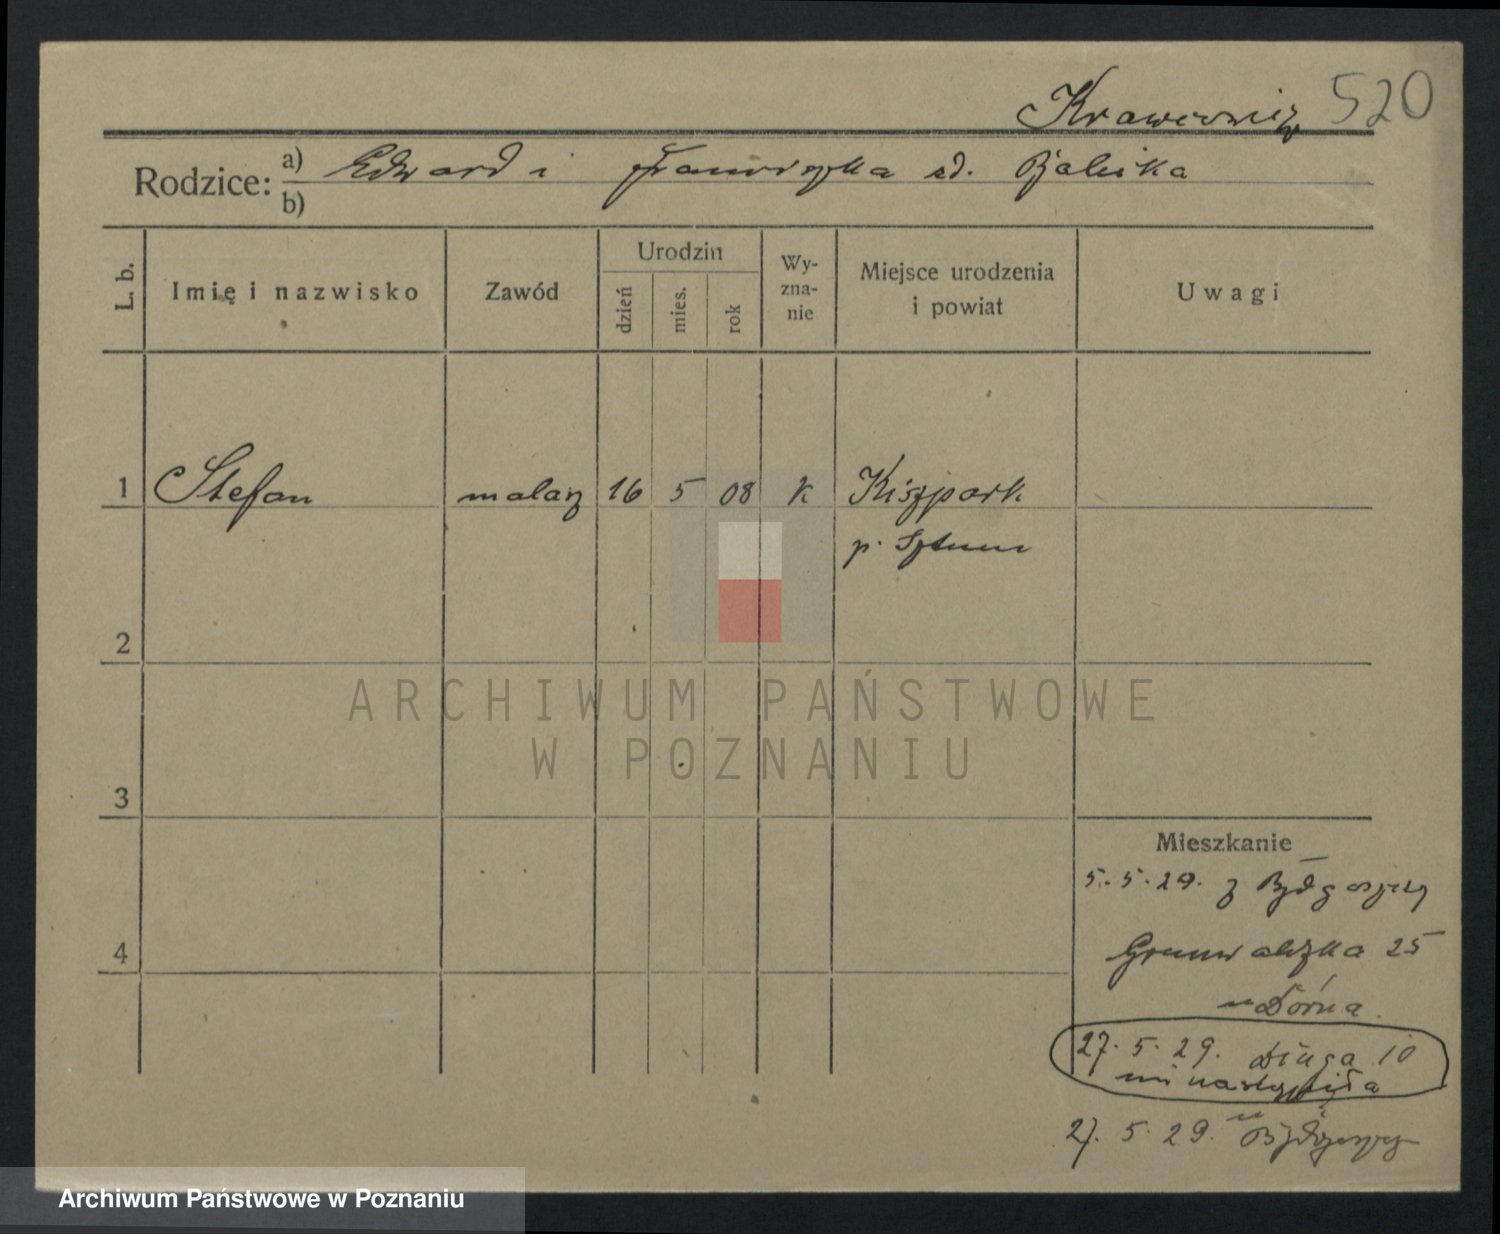 520
Rodzice: a) Edward i Franciszka zd. Balicka
b)
L. b.
Imię i nazwisko
Zawód
Urodzin
dzień
mies.
rok
Wy-
zna-
nie
Miejsce urodzenia
i powiat
Uwagi
1 Stefan malarz 16 5 08 k Kiszpark
p. Sztum
2
ARCHIWUM PAŃSTWOWE
W POZNANIU
3
Mieszkanie
5. 5. 29. z Bydgoszczy
4
Grunwaldzka 25
u
27. 5. 29. Długa 10
nastąpiła
27. 5. 29. Bydgoszcz
Archiwum Państwowe w Poznaniu